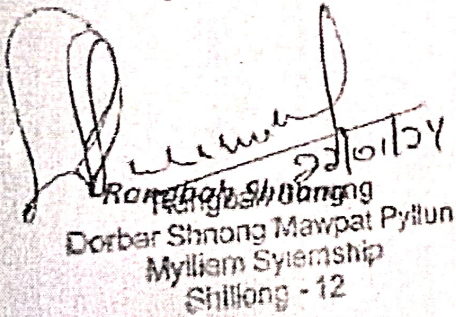 22/01/24
Rangbah Shnong
Dorbar Shnong Mawpat Pyllun
Mylliem Syiemship
Shillong - 12